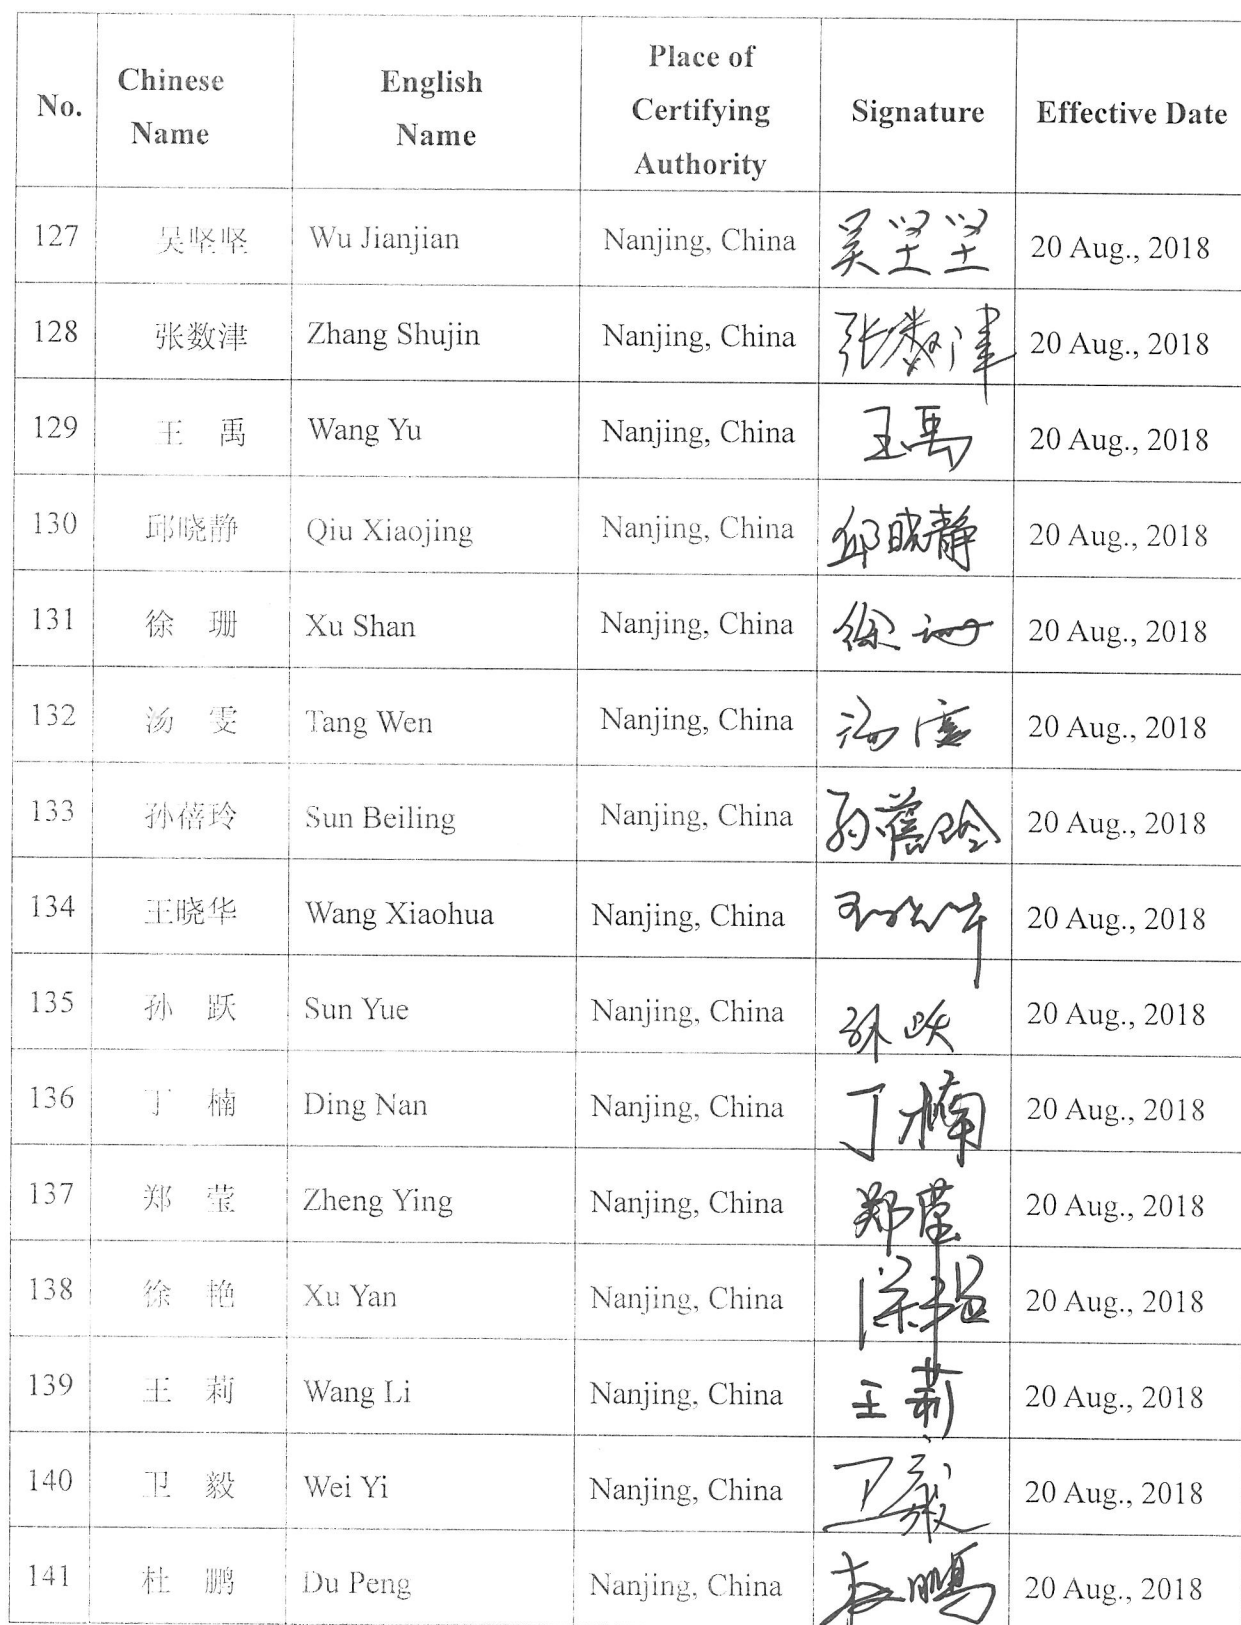 No. Chinese Name English Name Place of Certifying Authority Signature Effective Date
127 吴坚坚 Wu Jianjian Nanjing, China 吴坚坚 20 Aug., 2018
128 张数津 Zhang Shujin Nanjing, China 张数津 20 Aug., 2018
129 王 禹 Wang Yu Nanjing, China 王禹 20 Aug., 2018
130 邱晓静 Qiu Xiaojing Nanjing, China 邱晓静 20 Aug., 2018
131 徐 珊 Xu Shan Nanjing, China 徐珊 20 Aug., 2018
132 汤 雯 Tang Wen Nanjing, China 汤雯 20 Aug., 2018
133 孙蓓玲 Sun Beiling Nanjing, China 孙蓓玲 20 Aug., 2018
134 王晓华 Wang Xiaohua Nanjing, China 王晓华 20 Aug., 2018
135 孙 跃 Sun Yue Nanjing, China 孙跃 20 Aug., 2018
136 丁 楠 Ding Nan Nanjing, China 丁楠 20 Aug., 2018
137 郑 莹 Zheng Ying Nanjing, China 郑莹 20 Aug., 2018
138 徐 艳 Xu Yan Nanjing, China 徐艳 20 Aug., 2018
139 王 莉 Wang Li Nanjing, China 王莉 20 Aug., 2018
140 卫 毅 Wei Yi Nanjing, China 卫毅 20 Aug., 2018
141 杜 鹏 Du Peng Nanjing, China 杜鹏 20 Aug., 2018